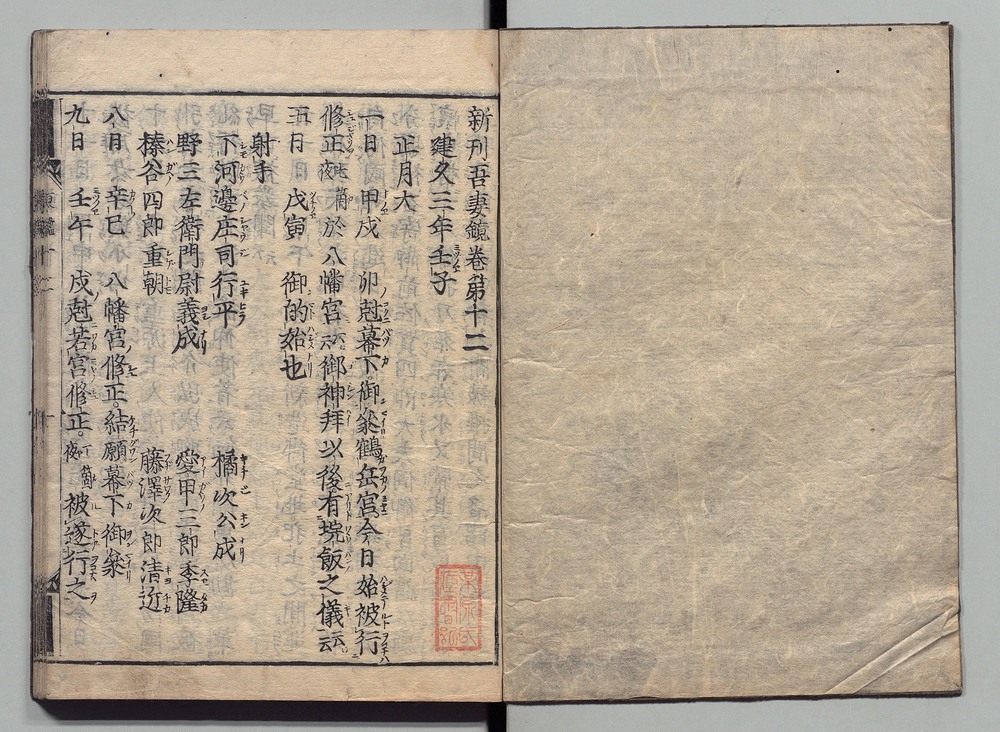 新刊吾妻鏡巻第十二
建久三年壬子
正月大
一日 甲戌 卯尅幕下御參鶴岳宮今日始被行
修正夜七箇於八幡宮云云御神拜以後有垸飯之儀云云
五日 戊寅 御的始也
射手
下河邊庄司行平 橘次公成
野三左衛門尉義成 愛甲三郎季隆
榛谷四郎重朝 藤澤次郎清近
八日 辛巳 八幡宮修正。結願幕下御參
九日 壬午 戌尅若宮修正。夜一箇被遂行之今日
東鑑十二